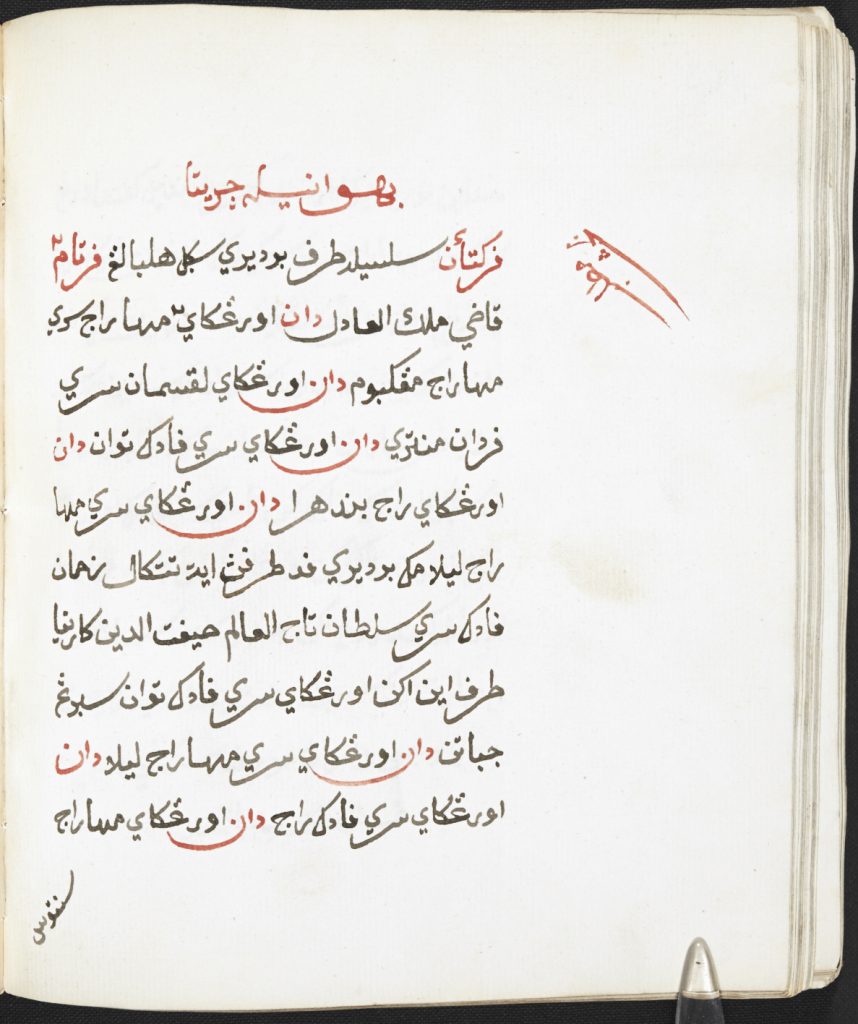 بهوا انيله چريتا
فركتأن سلسيله طرف بوديري سكل هلبالڠ فرتام٢
قاضي ملك العادل دان اورڠكاي٢ مهاراج سري
مهاراج مڠكبوم دان اورڠكاي لقسمان سري
فردان منتري دان اورڠكاي سري فادك توان دان
اورڠكاي راج بندهرا دان اورڠكاي سري مها
راج ليلا مك بوديري فد طرفڽ ايت تتكال زمان
فادك سري سلطان تاج العالم صيفت الدين كارنيا
طرف اين اكن اورڠكاي سري فادك توان سبرڠ
جباتن دان اورڠكاي سري مهاراج ليلا دان
اورڠكاي سري فادك راج دان اورڠكاي مهاراج